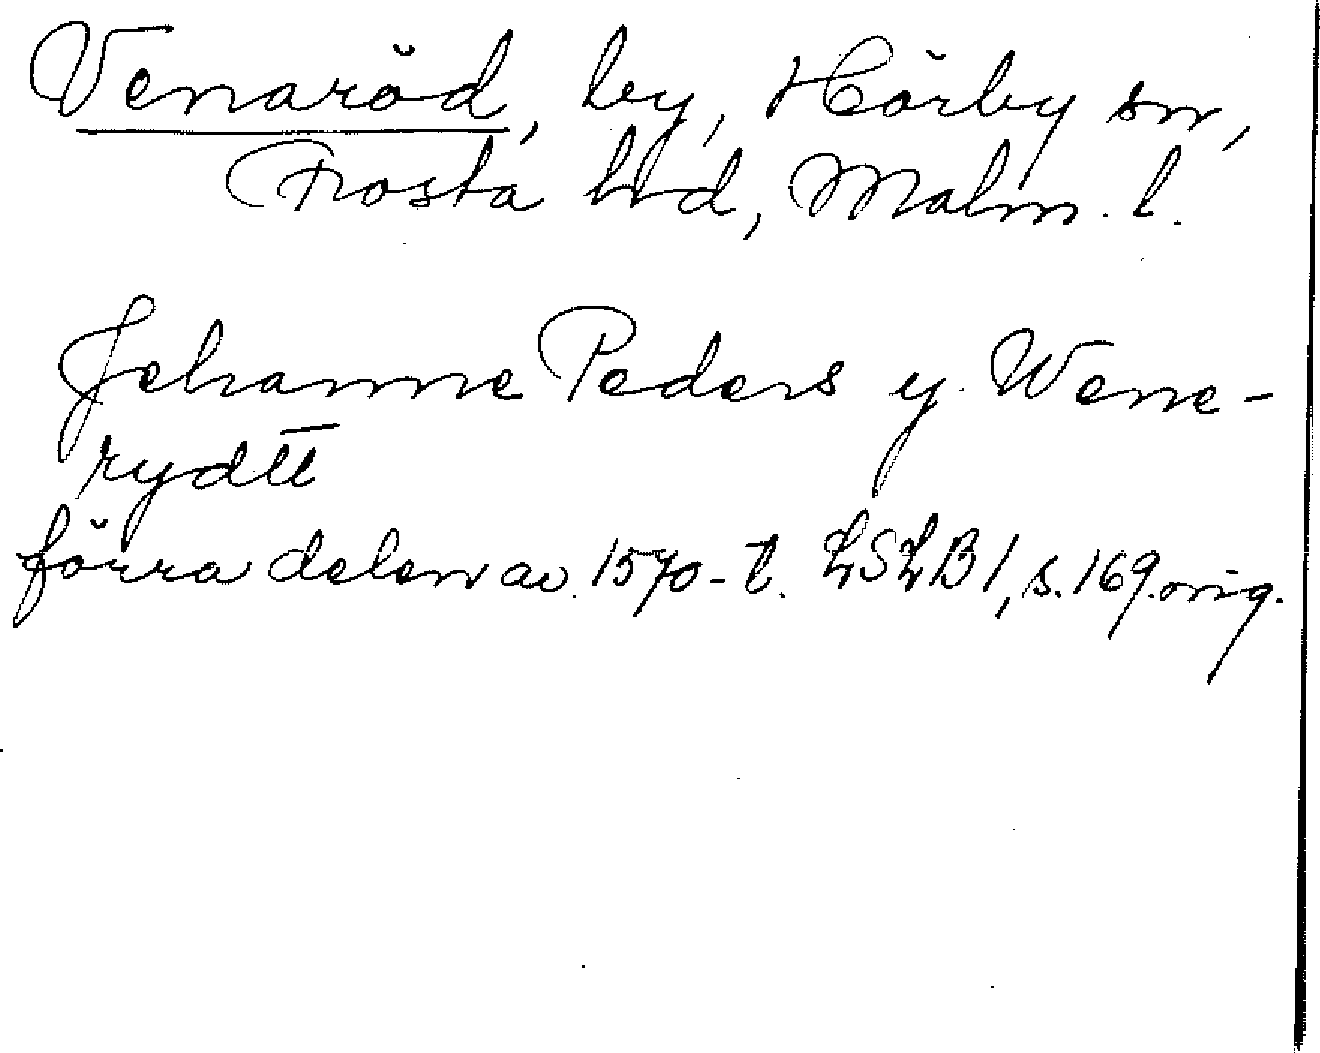 Venaröd, by, Hörby sn,
Frosta hd, Malm. l.
Jehanne Peders y Wene-
rydtt
förra delen av 1570-t. LSLB1, s. 169. orig.